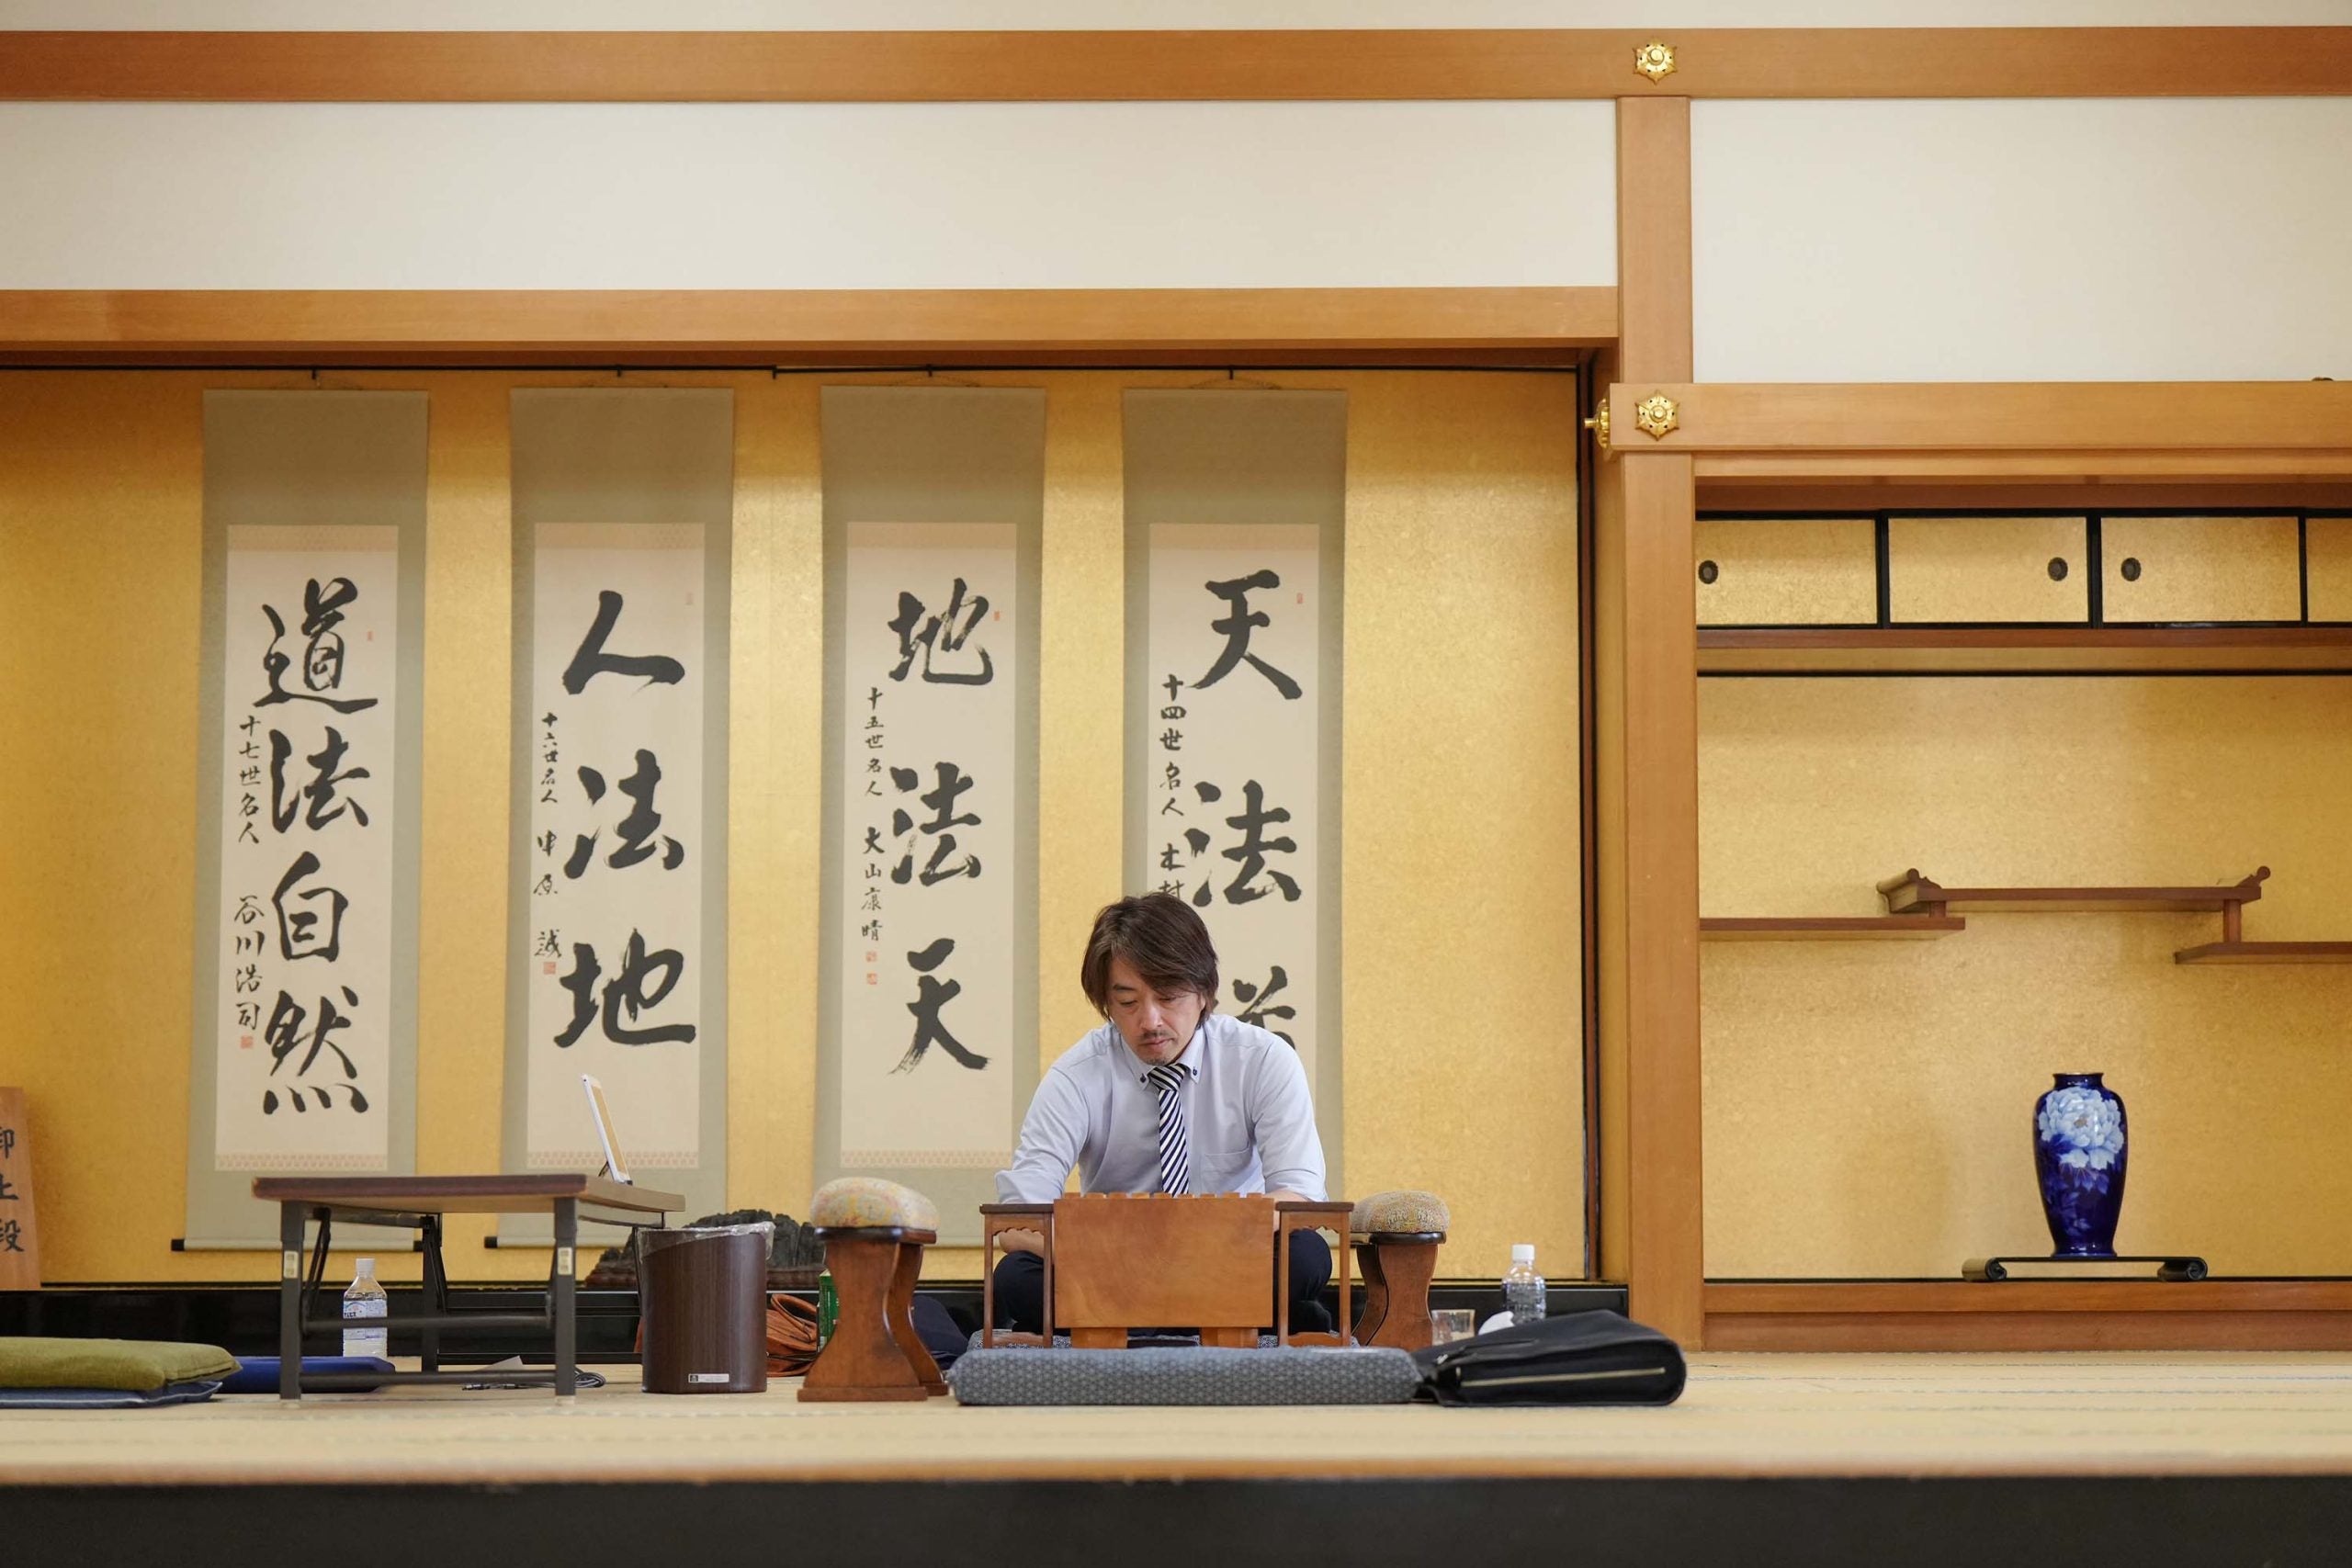 天法道
十四世名人 木村
地法天
十五世名人 大山康晴
人法地
十六世名人 中原 誠
道法自然
十七世名人 谷川浩司
御上段